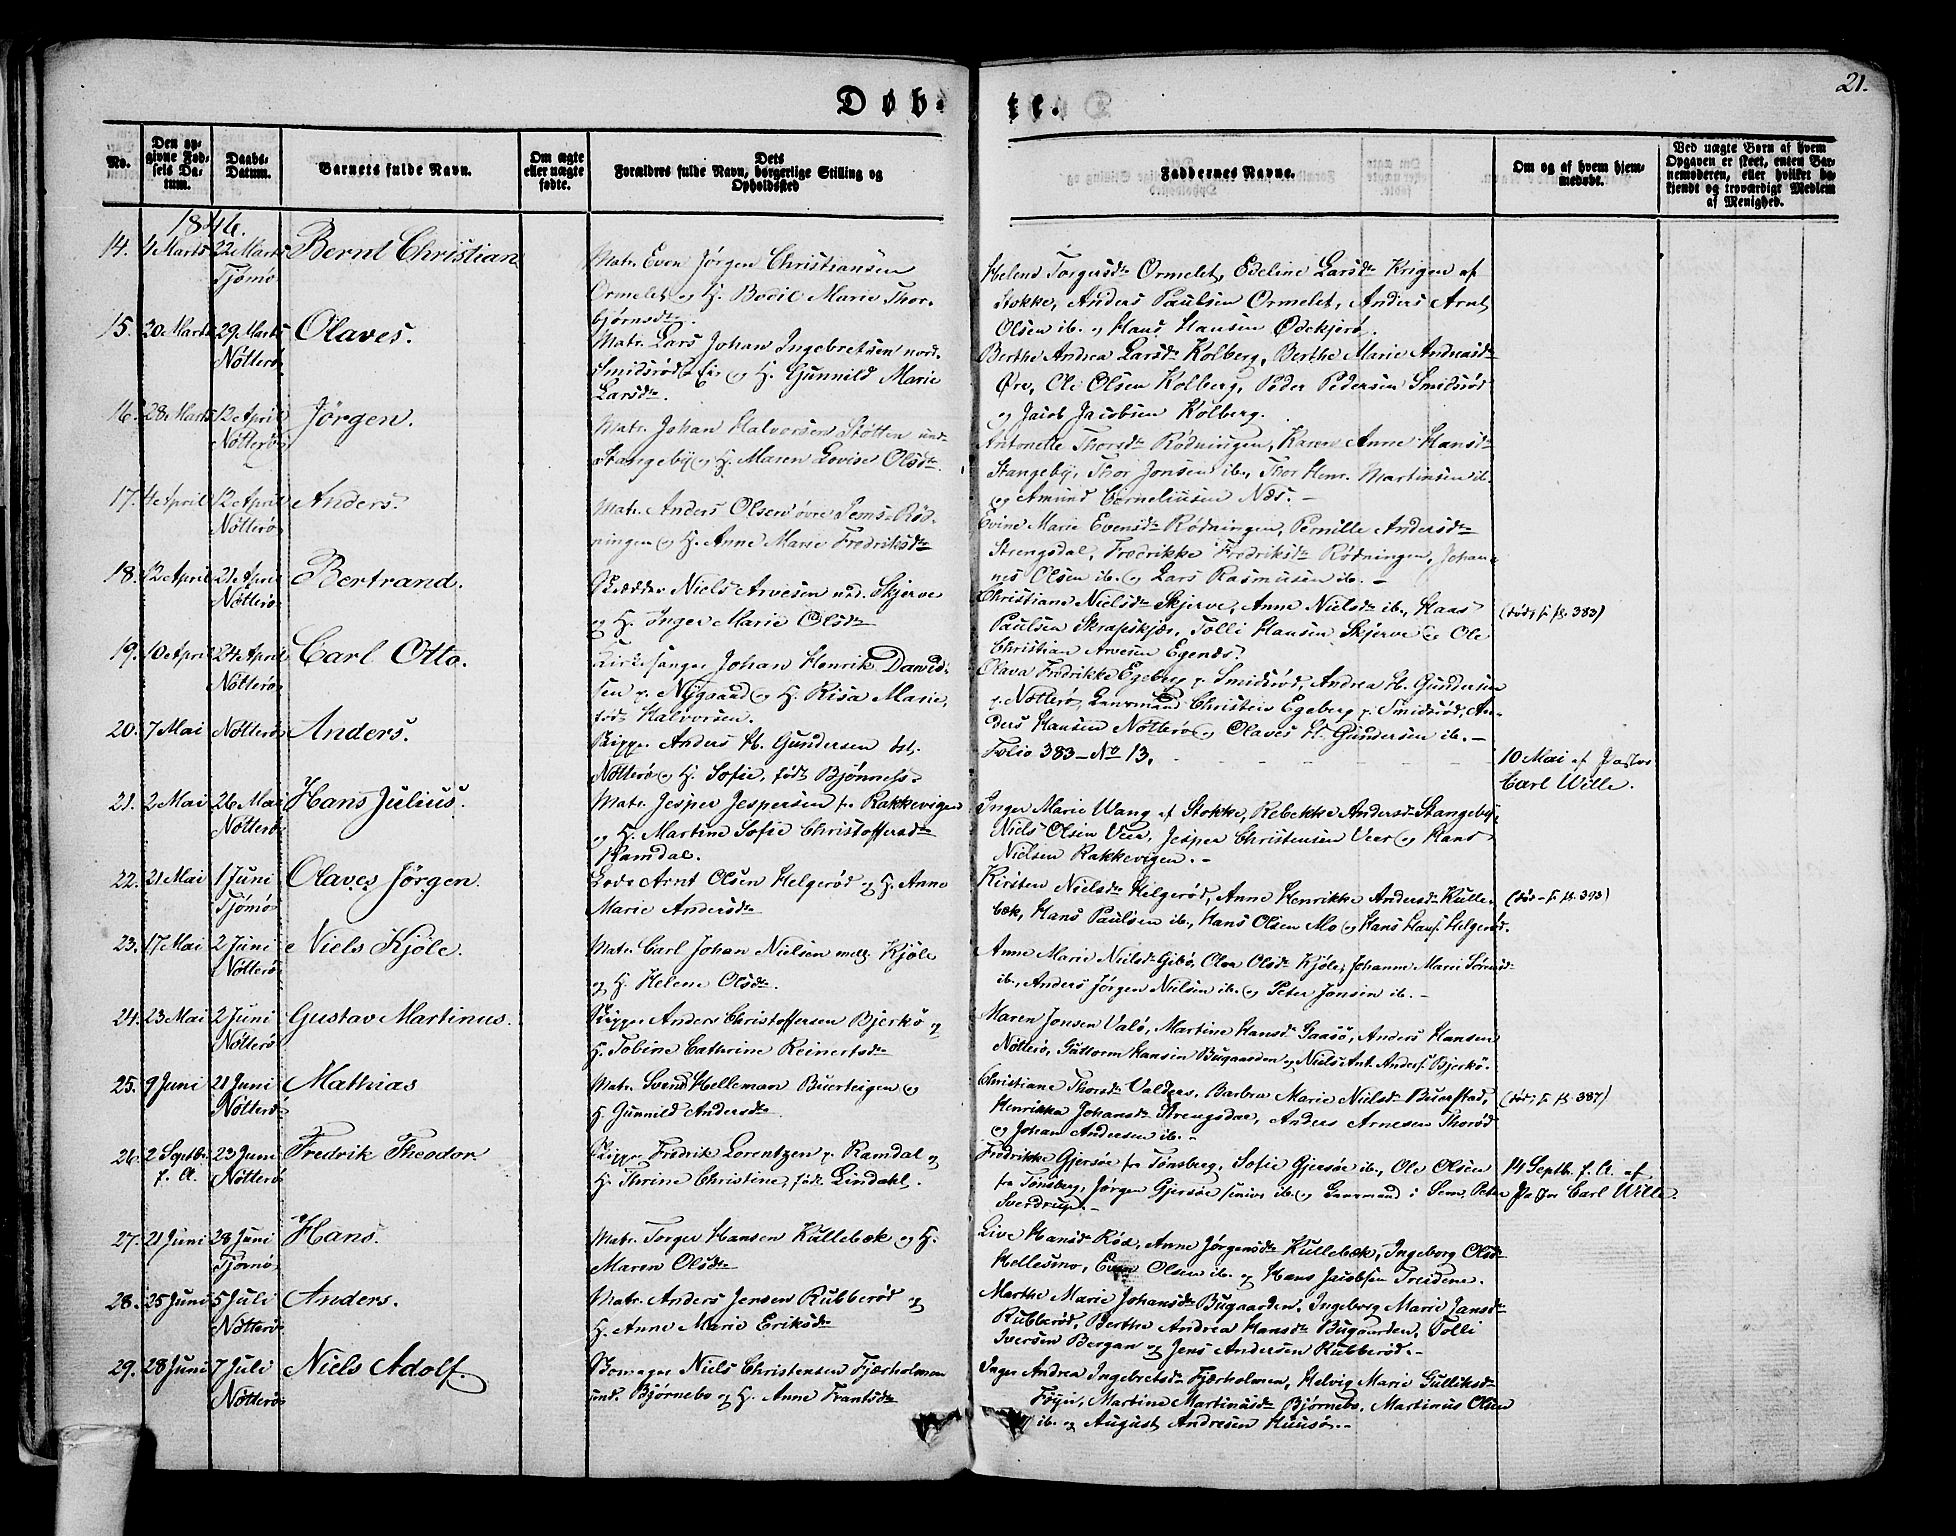 21.
Døb-te.
No.
Den opgivne Fødsels Datum.
Daabs-Datum.
Barnets fulde Navn.
Om ægte eller uægte fødte.
Forældres fulde Navn, Dets borgerlige Stilling og Opholdssted
Faddernes Navne.
Om og af hvem hjemmedøbt.
Ved uægte Børn af hvem Opgaven er skeet, enten Barnemoderen, eller hvilket bekjendt og troværdigt Medlem af Menighed.
1846.
14. 4 Marts 22 Marts Tjømø Bernt Christian
Matr. Even Jørgen Christiansen
Ormelet og H. Bodil Marie Thor-
bjørnsdtr.
Helene Torgersdtr Ormelet, Edeline Larsdtr Krigen af
Stokke, Anders Paulsen Ormelet, Anders Arnt
Olsen ib. og Hans Hansen Ødekjerø.
15. 20 Marts 29 Marts Nøtterø Olaves.
Matr. Lars Johan Ingebretsen nord.
Smidsrød Eie og H. Gunnild Marie
Larsdtr.
Berthe Andrea Larsdtr Kolberg, Berthe Marie Andreasdtr
Øre, Ole Olsen Kolberg, Peder Pedersen Smidsrød
og Jacob Jacobsen Kolberg.
16. 28 Marts 12 April Nøtterø Jørgen.
Matr. Johan Halvorsen Støtten und.
Stangeby og H. Maren Lovise Olsdtr.
Antonette Thorsdtr Rødningen, Karen Anne Hansdtr
Stangeby, Thor Jonsen ib., Thor Henr. Martinsen ib.
og Amund Corneliusen Næs. -
17. 4 April 12 April Nøtterø Anders.
Matr. Anders Olsen øvre Sems-Rød-
ningen og H. Anne Marie Fredriksdtr
Evine Marie Evensdtr Rødningen, Pernille Andersdtr
Strengsdal, Fredrikke Fredriksdtr Rødningen, Johan-
nes Olsen ib. og Lars Rasmusen ib. -
18. 12 April 21 April Nøtterø Bertrand.
Skrædder Niels Arvesen nid. Skjerve
og H. Inger Marie Olsdtr
Christiane Nielsdtr Skjerve, Anne Nielsdtr ib., Hans
Paulsen Skrapeskjær, Tolli Hansen Skjerve og Ole
Christian Arvesen Egenæs.
(død, s. f. 383)
19. 10 April 24 April Nøtterø Carl Otto.
Kirkesanger Johan Henrik David-
sen p. Nygaard og H. Risa Marie,
født Halvorsen.
Olava Fredrikke Egeberg p. Smidsrød, Andrea H. Gundersen
p. Nøtterø, Lensmand Christen Egeberg p. Smidsrød, An-
ders Hansen Nøtterø og Olaves H. Gundersen ib. -
20. 7 Mai Nøtterø Anders.
Skipper Anders H. Gundersen
Nøtterø og H. Sofie, født Bjønness.
Folio 383 - No 13.
10 Mai af Pastor
Carl Wille.
21. 2 Mai 26 Mai Nøtterø Hans Julius.
Matr. Jesper Jespersen fr. Rakkevigen
og H. Martine Sofie Christoffersdtr
Ramdal.
Inger Marie Wang af Stokke, Rebekke Andersdtr Stangeby,
Niels Olsen Veer, Jesper Christensen Veer og Hans
Nielsen Rakkevigen. -
22. 21 Mai 1 Juni Tjømø Olaves Jørgen.
Lods Arnt Olsen Helgerød og H. Anne
Marie Andersdtr
Kirsten Nielsdtr Helgerød, Anne Henrikke Andersdtr Kulle-
bæk, Hans Paulsen ib., Hans Olsen Mo og Hans Hans. Helgerød.
(død - s. f. 393)
23. 17 Mai 2 Juni Nøtterø Niels Kjøle.
Matr. Carl Johan Nielsen mell. Kjøle
og H. Helene Olsdtr.
Anne Marie Nielsdtr Gibø, Olea Olsdtr Kjøle, Johanne Marie Sørensdtr
ib., Anders Jørgen Nielsen ib. og Peter Jansen ib. -
24. 23 Mai 2 Juni Nøtterø Gustav Martinus.
Skipper Anders Christoffersen Bjerkø og
H. Tobine Cathrine Reinertsdtr
Maren Jonsen Valø, Martine Hansdtr Gaasø, Anders Hansen
Nøtterø, Guttorm Hansen Bugaarden og Niels Ant. Anders. Bjerkø.
25. 9 Juni 21 Juni Nøtterø Mathias
Matr. Svend Helleman Buerteigen og
H. Gunnild Andersdtr
Christiane Thorsdtr Valders, Barbra Marie Nielsdtr Buerstad,
Henrikka Johansdtr Strengsdal, Anders Arnesen Thorød
og Johan Andersen ib. -
(død, s. f. 387)
26. 2 Septbr. f. A. 23 Juni Nøtterø Fredrik Theodor
Skipper Fredrik Lorentzen p. Ramdal og
H. Thrine Christine, født Lindahl.
Fredrikke Gjersøe fra Tønsberg, Sofie Gjersøe ib., Ole Olsen
fra Tønsberg, Jørgen Gjersøe junior ib. og Lensmand i Sem, Peter
Sverdrup. -
14 Septb. f. A. af
Pastor Carl Wille.
27. 21 Juni 28 Juni Tjømø Hans.
Matr. Torger Hansen Kullebæk og H.
Maren Olsdtr
Live Hansdtr Rød, Anne Jørgensdtr Kullebæk, Ingeborg Olsdtr
Hellesmo, Even Olsen ib. og Hans Jacobsen Treidene.
28. 25 Juni 5 Juli Nøtterø Anders.
Matr. Anders Jensen Rubberød og
H. Anne Marie Eriksdtr
Marthe Marie Johansdtr Bugaarden, Ingeborg Marie Jansdtr
Rubberød, Berthe Andrea Hansdtr Bugaarden, Tolli
Iversen Bergan og Jens Andersen Rubberød. -
29. 28 Juni 7 Juli Nøtterø Niels Adolf.
Skomager Niels Christensen Fjærholmen
und. Bjørnebo og H. Anne Frantsdtr
Inger Andrea Ingebretsdtr Fjærholmen, Helvig Marie Gulliksdtr
Føyn, Martine Martinusdtr Bjørnebo, Martinus Olsen
ib. og August Andresen Huusø. -